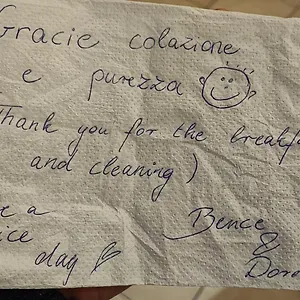 Gracie colazione
e purezza
(Thank you for the breakfa
and cleaning )
e a
ice
day
Bence
&
Dor